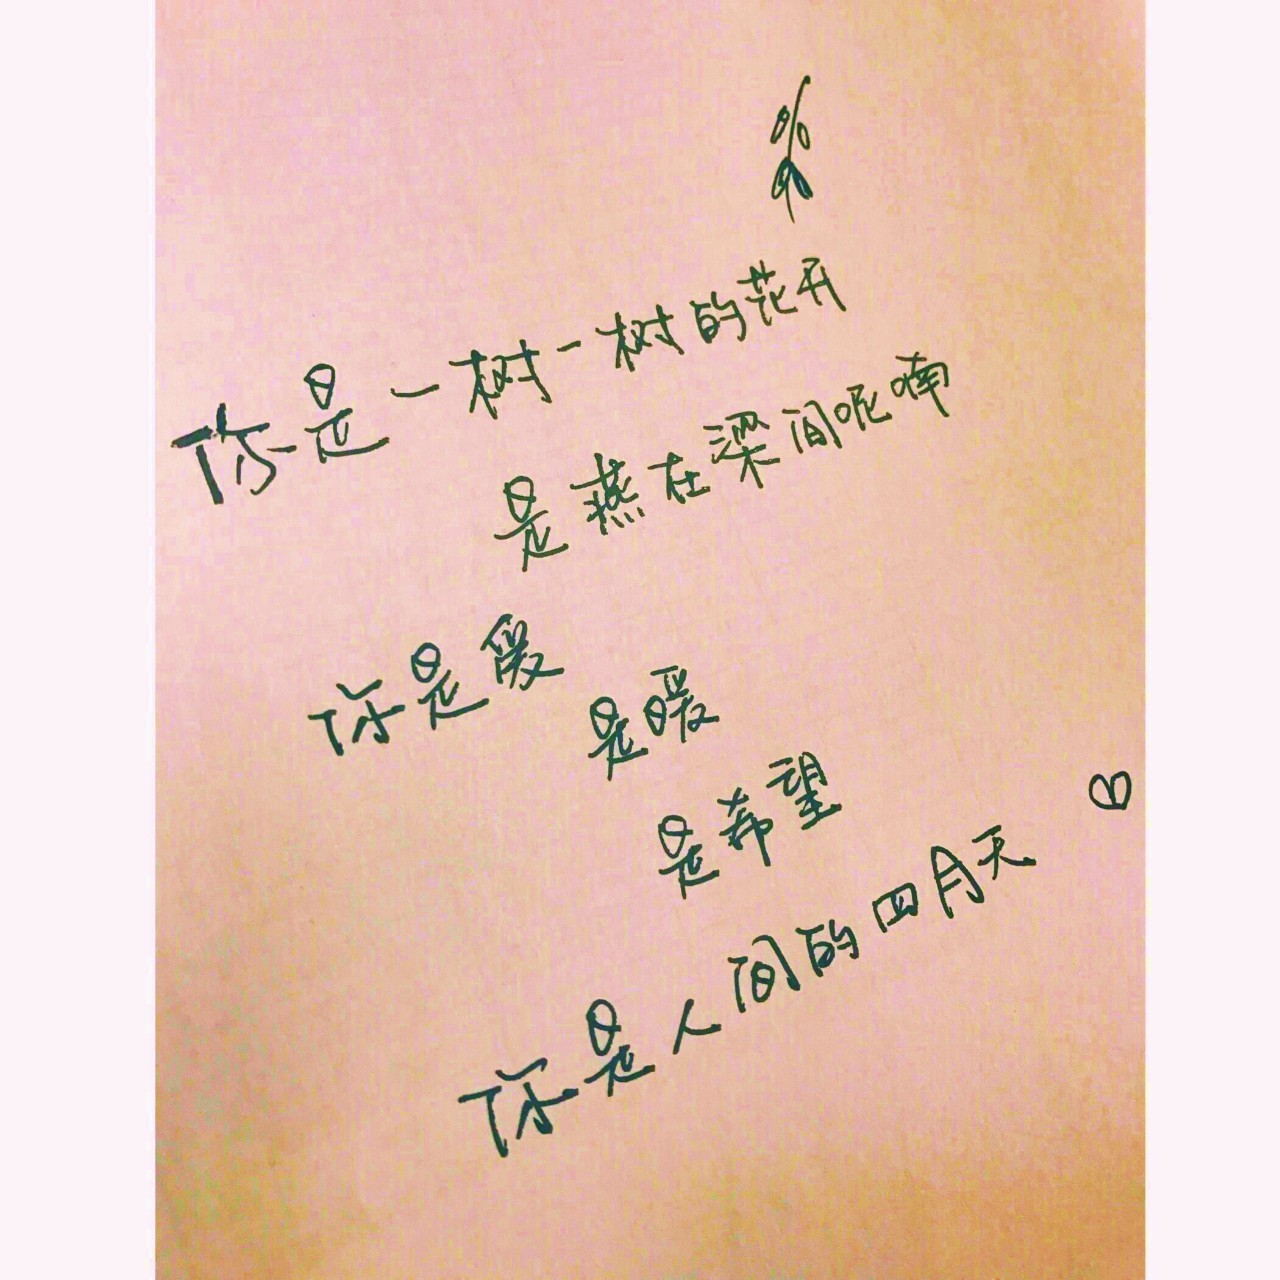 你是一树一树的花开
是燕在梁间呢喃
你是爱
是暖
是希望
你是人间的四月天